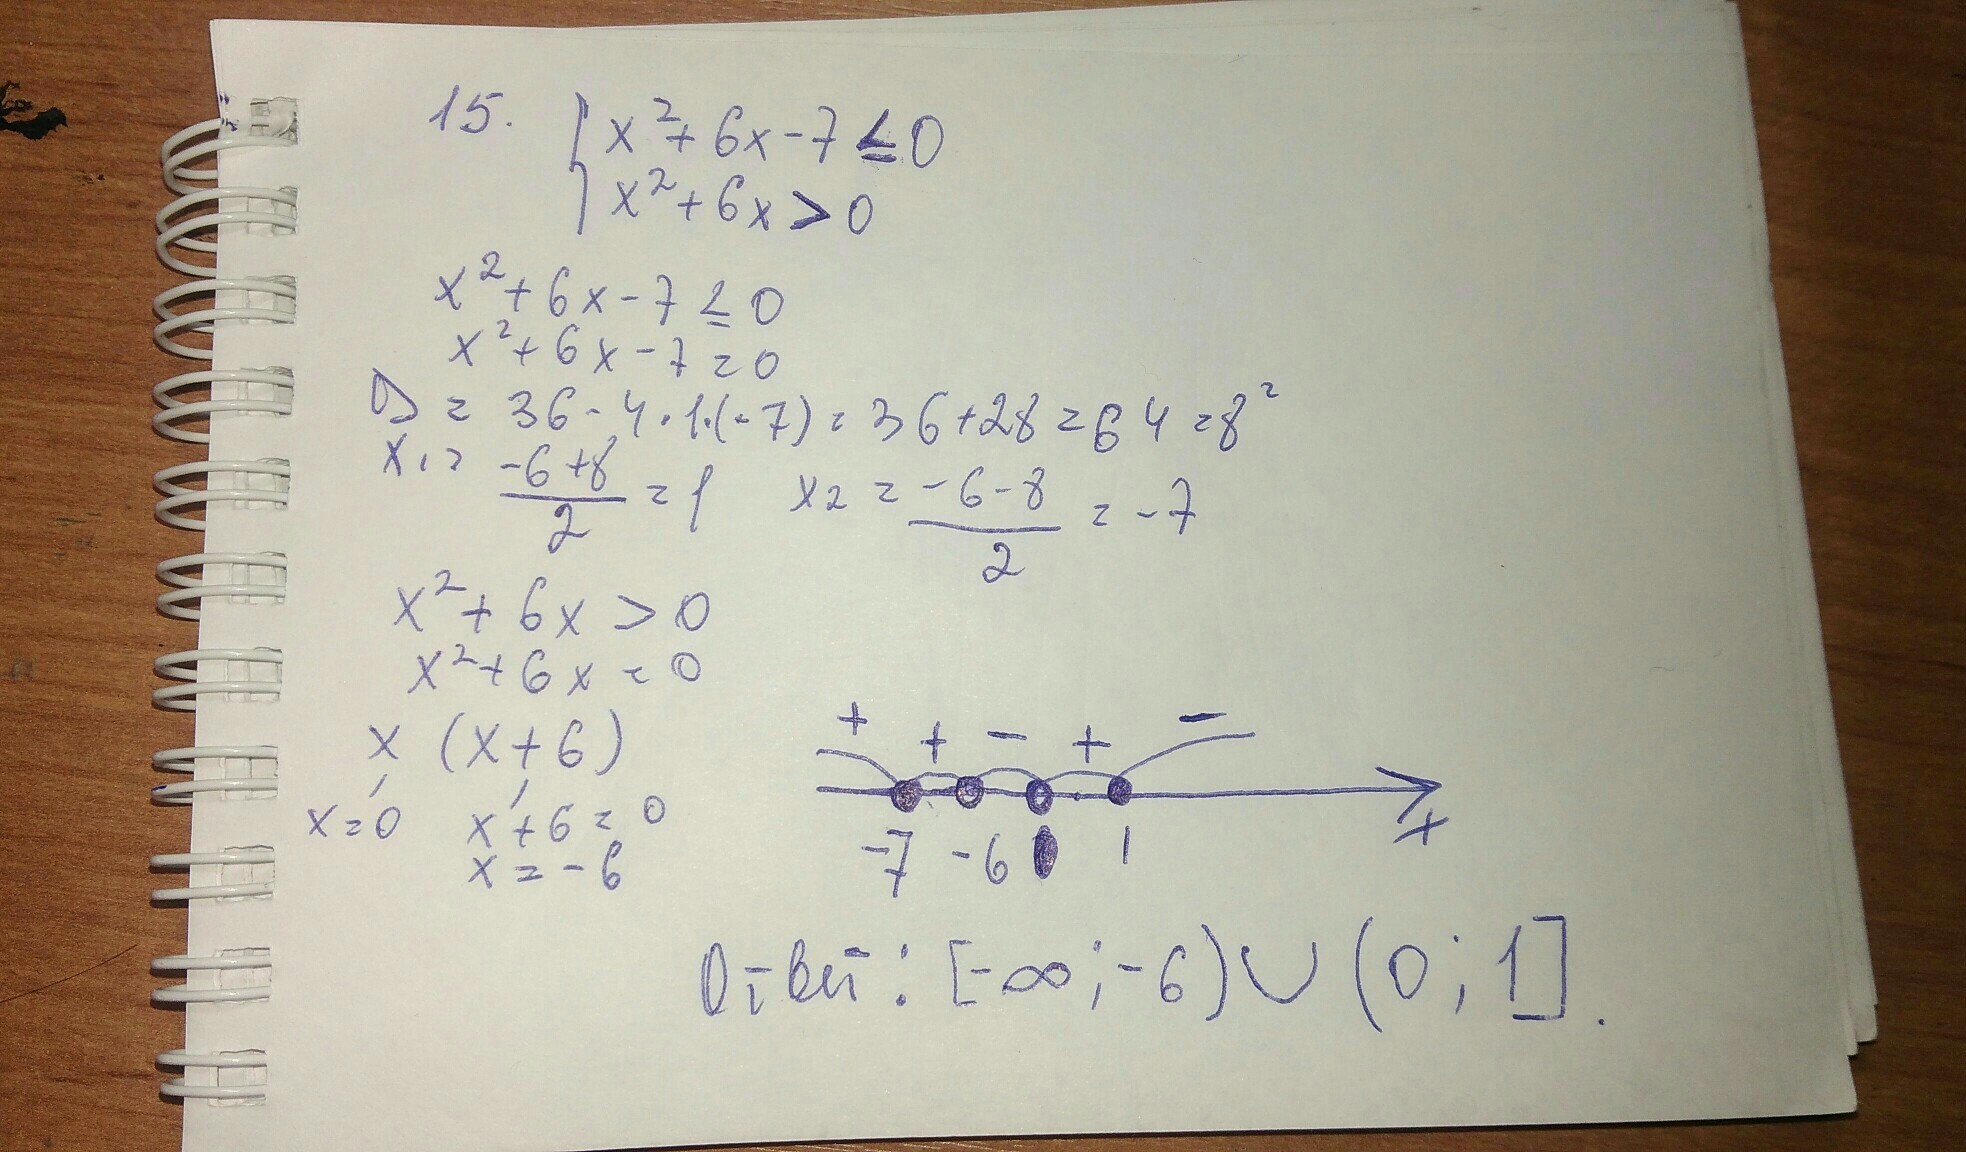 15. { x² + 6x - 7 ≤ 0
x² + 6x > 0
x² + 6x - 7 ≤ 0
x² + 6x - 7 = 0
D = 36 - 4·1·(-7) = 36 + 28 = 64 = 8²
x₁ = (-6+8)/2 = 1 x₂ = (-6-8)/2 = -7
x² + 6x > 0
x² + 6x = 0
x (x+6)
x=0 x+6=0
x=-6
+ + - + -
-7 -6 0 1 x
Ответ: [-∞; -6) ∪ (0; 1].